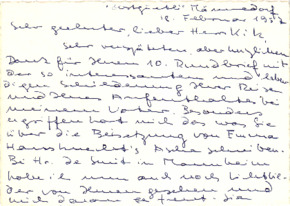 Männedorf
18. Februar 1957
Sehr geehrter, lieber Herr Kik,
Sehr verspäteten aber herzlichen
Dank für Ihren 10. Rundbrief mit
der so interessanten und leben-
digen Schilderung Ihrer Reisen
und Ihres Aufenthaltes bei
meinem Vater. Besonders
ergriffen hat mich das was Sie
über die Beisetzung von Emma
Asche schreiben.
Bei Hr. de Smit in Mannheim
habe ich nun auch noch Lichtbil-
der von Ihnen gesehen und
mich daran gefreut. Sie